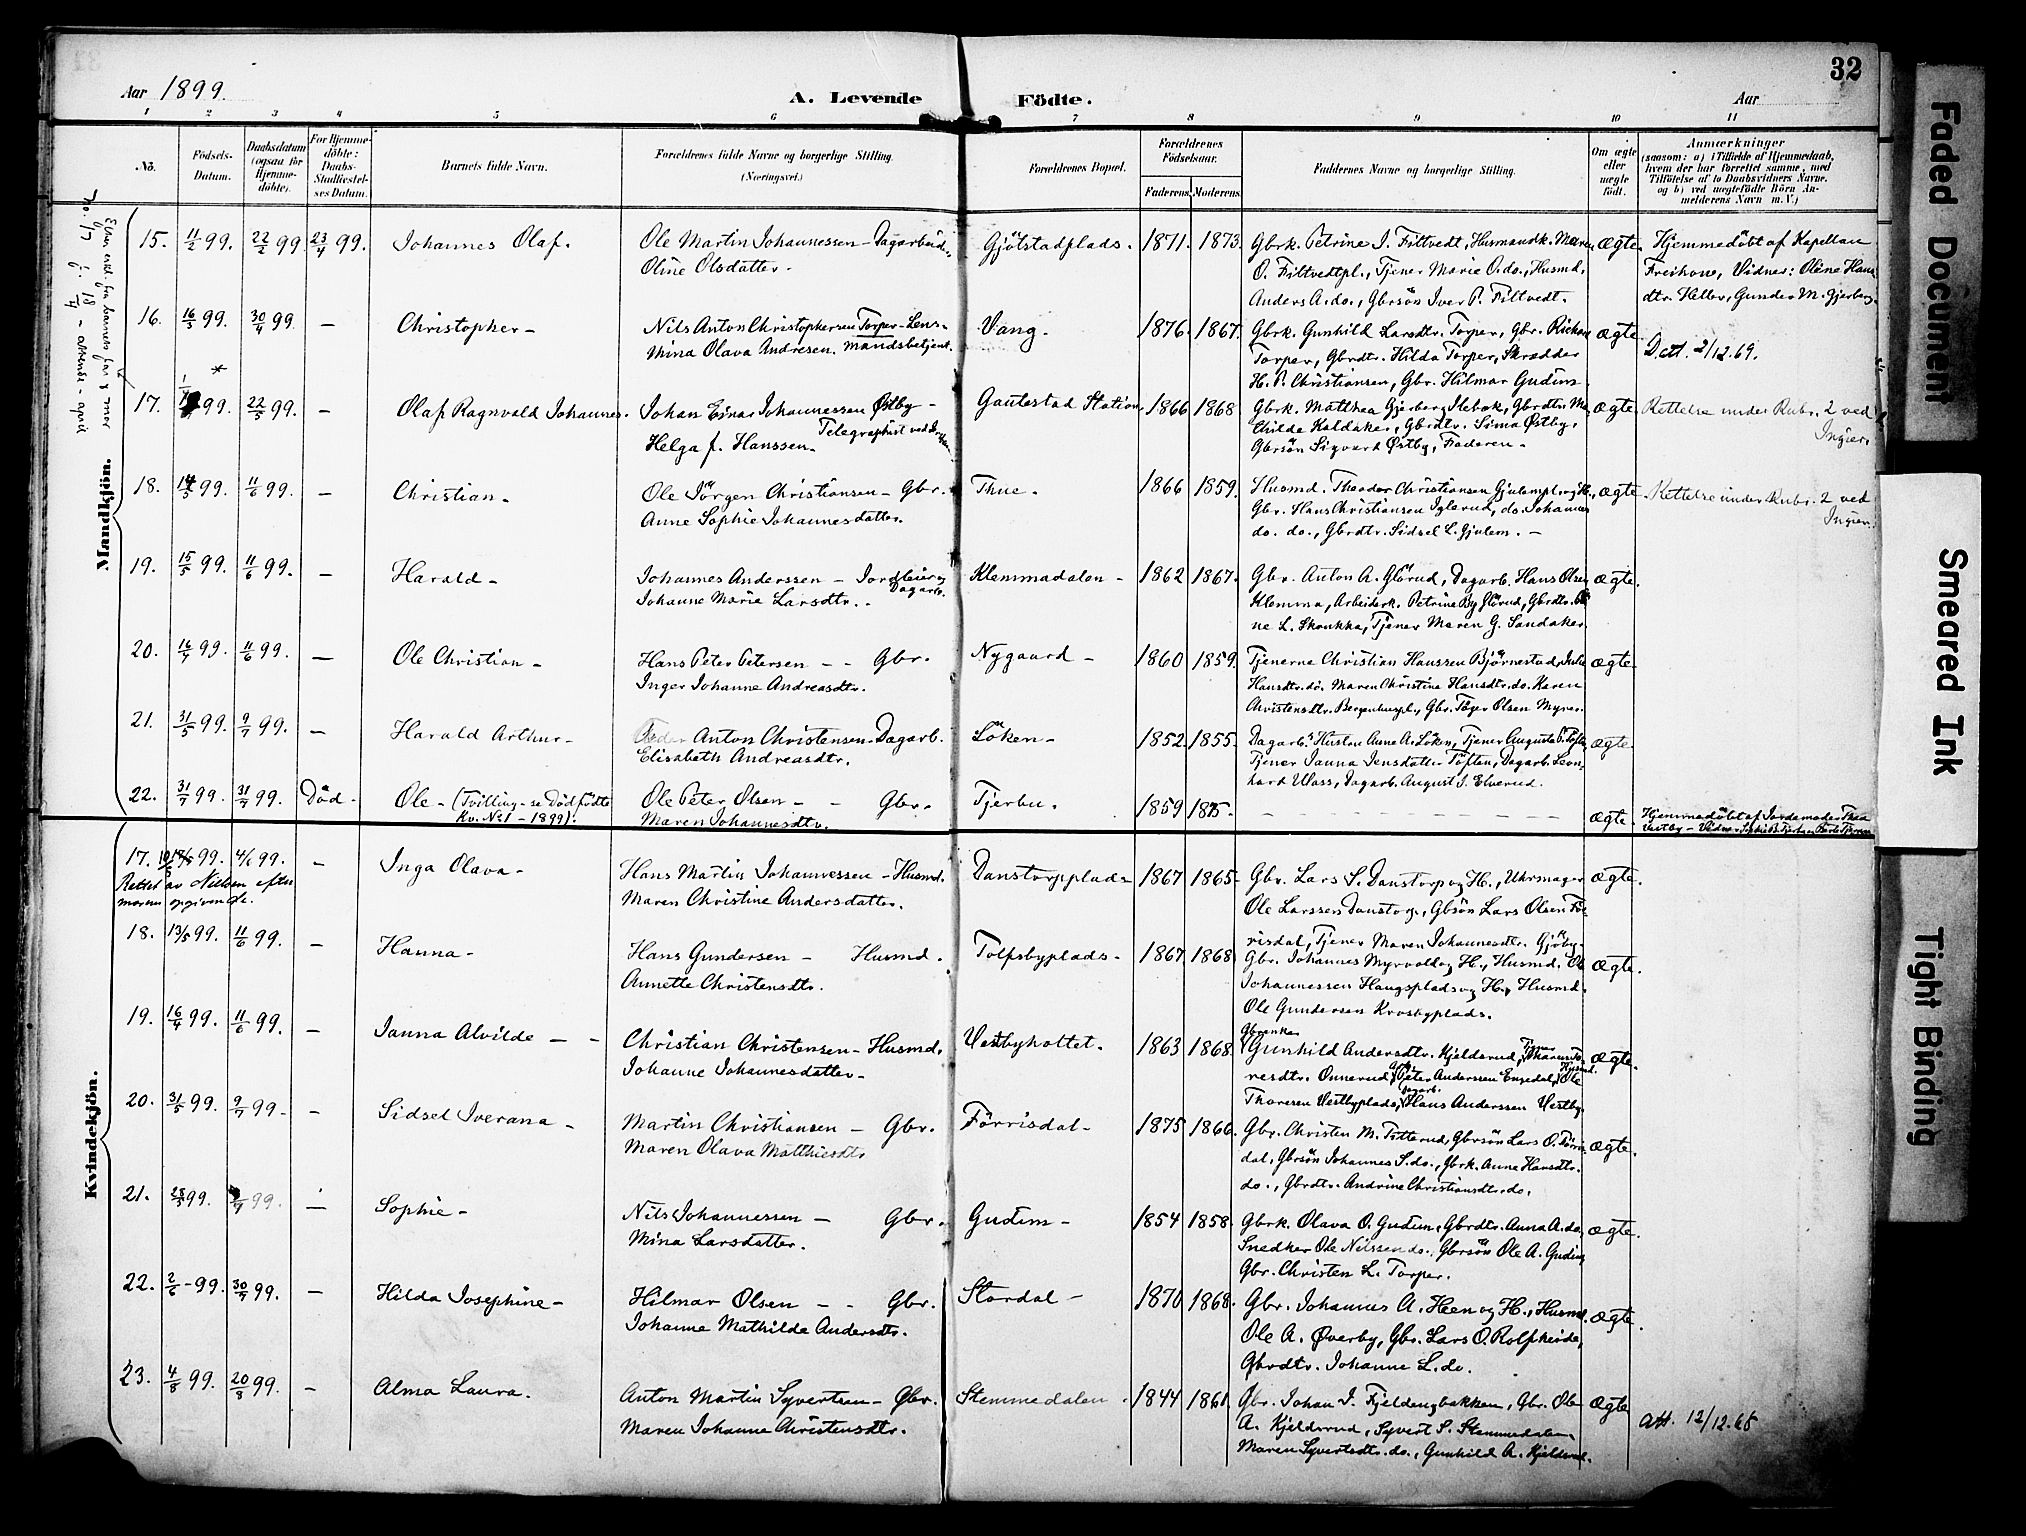 32
Aar 1899.
A. Levende Födte.
Aar
1 2 3 4 5 6 7 8 9 10 11
No.
Födsels-Datum.
Daabsdatum (ogsaa for Hjemme-döbte).
For Hjemme-döbte: Daabs-Stadfæstel-ses Datum.
Barnets fulde Navn.
Forældrenes fulde Navne og borgerlige Stilling. (Næringsvei.)
Forældrenes Bopæl.
Forældrenes Födselsaar.
Faderens. Moderens.
Faddernes Navne og borgerlige Stilling.
Om ægte eller uægte födt.
Anmærkninger
(saasom: a) i Tilfælde af Hjemmedaab,
hvem der har forrettet samme, med
Tilföielse af to Daabsvidners Navne,
og b) ved uægtefödte Börn An-
melderens Navn m. V.)
Mandkjön.
15. 11/2 99. 22/2 99. 23/4 99. Johannes Olaf. Ole Martin Johannessen - Dagarbeid. Gjölstadplads. 1871. 1873. Gbrk. Petrine I. Filtvedt, Husmandk. Maren ægte. Hjemmedöbt af Kapellan
Oline Olsdatter. O. Filtvedtpl., Tjener Marie O. do., Husmd. Freihow, Vidner: Oline Hans
Anders A. do., Gbrsön Iver P. Filtvedt. dtr. Heller, Gunder M. Gjerberg.
16. 16/3 99. 30/4 99. - Christopher - Nils Anton Christophersen Torper - Lens- Vang. 1876. 1867. Gbrk. Gunhild Larsdtr. Torper, Gbr. Richard ægte.
Mina Olava Andresen. mandsbetjent. Torper, Gbrdtr. Hilda Torper, Skrædder Dett. 2/12.69.
H. P. Christiansen, Gbr. Hilmar Gudim.
17. 99. 22/5 99. - Olaf Ragnvald Johannes. Johan Einar Johannessen Østby - Gautestad Station 1866 1868 Gbrk. Matthea Gjerberg Ilebæk, Gbrdtr. Ma- ægte. Rettelse under Rubr. 2 ved
Helga f. Hanssen. Telegraphist ved thilde Kaldaker, Gbrdtr. Sima Østby, Ingier.
Gbrsön Sigvard Østby, Faderen.
18. 14/5 99. 11/6 99. - Christian - Ole Jörgen Christiansen - Gbr. Thue. 1866 1859. Husmd. Theodor Christiansen Gjulempl. og H., ægte. Rettelse under Rubr. 2 ved
Anne Sophie Johannesdatter. Gbr. Hans Christiansen Iglerud, do. Johannes Ingier.
do. do., Gbrdtr. Sidsel L. Gjulem. -
19. 15/5 99. 11/6 99. - Harald - Johannes Anderssen - Jordleier og Dagarb. Klemmadalen - 1862 1867. Gbr. Anton A. Glörud, Dagarb. Hans Olsen ægte.
Johanne Marie Larsdtr. Klemma, Arbeiderk. Petrine By Glörud, Gbrdtr. Oli-
ne L. Skoukka, Tjener Maren G. Sandaker
20. 16/4 99. 11/6 99. - Ole Christian - Hans Peter Petersen - - Gbr. Nygaard - 1860 1859. Tjenerne Christian Hanssen Björnestad, Julie ægte.
Inger Johanne Andreasdtr. Hansdtr. do. Maren Christine Hansdtr. do. Karen
Christensdtr. Bergerhuspl., Gbr. Töger Olsen Myrer.
21. 31/5 99. 9/7 99. - Harald Arthur - Peder Anton Christensen - Dagarb. Löken - 1852. 1855. Dagarb. Hustru Anne A. Löken, Tjener Augusta P. Toften, ægte.
Elisabeth Andreasdtr. Tjener Janna Jensdatter Toften, Dagarb. Leon-
hard Wass, Dagarb. August J. Elverud.
22. 31/7 99. 31/7 99. Död - Ole - (Tvilling - se Dödfödte Kv. No 1 - 1899). Ole Peter Olsen - - Gbr. Tjerbu. 1859 ægte. Hjemmedöbt af Jordemoder Thea
Maren Johannesdtr. Vestby - Vidner
Kvindekjön.
17. 4/6 99. - Inga Olava - Hans Martin Johannessen - Husmd. Danstorpplads 1867 1865. Gbr. Lars S. Danstorp og H., Uhrmager ægte.
Rettet av Nielsen efter Maren Christine Andersdatter. Ole Larssen Danstorp, Gbsön Lars Olsen För-
moren opgivende. risdal, Tjener Maren Johannesdtr. Gjöby.
18. 13/5 99. 11/6 99. - Hanna - Hans Gundersen - Husmd. Tolfsbyplads - 1867 1868 Gbr. Johannes Myrvold og H., Husmd. Ole ægte.
Annette Christensdtr. Johannessen Haugsplads og H., Husmd.
Ole Gundersen Krosbyplads.
19. 16/4 99. 11/6 99. - Janna Alvilde - - Christian Christensen - Husmd. Vestbykottet. 1863 1868. Gbrenke Gunhild Andersdtr. Kjelderud, Tjener Maren To- ægte.
Johanne Johannesdatter - resdtr. Onnerud, Peter Anderssen Engedal, Husmd. Ole
Thoresen Vestbyplads, Dagarb. Hans Anderssen Vestby.
20. 31/5 99. 9/7 99 - - Sidsel Iverana - Martin Christiansen - Gbr. Förrisdal - 1875 1866. Gbr. Christen M. Titterud, Gbrsön Lars O. Förris- ægte.
Maren Olava Matthiesdtr. dal, Gbrsön Johannes S. do., Gbrk. Anne Hansdtr.
do., Gbrdtr. Andrine Christiansdtr. do.
21. 28/5 99. 99. - Sophie - Nils Johannessen - Gbr. Gudim - 1854 1858. Gbrk. Olava O. Gudim, Gbrdtr. Anna A. do. ægte.
Mina Larsdatter. Snedker Ole Nilssen do., Gbrsön Ole A. Gudim,
Gbr. Christen L. Torper.
22. 2/6 - 99. 30/7 99. - Hilda Josephine - Hilmar Olsen - - Gbr. Stordal - 1870 1868. Gbr. Johannes A. Heen og H., Husmd. ægte.
Johanne Mathilde Andersdtr. Ole A. Øverby, Gbr. Lars O. Rolfheide,
Gbrdtr. Johanne L. do.
23. 4/8 99. 20/8 99. - Alma Laura. Anton Martin Syvertsen - Gbr. Stemmedalen. 1844 1861. Gbr. Johan J. Fjeldengbakken, Gbr. Ole ægte.
Maren Johanne Christensdtr. A. Kjelderud, Syvert S. Stemmedalen Att. 12/12.65
Maren Syvertsdtr. do., Gunhild A. Kjelderud.
Faded Document
Smeared Ink
Tight Binding